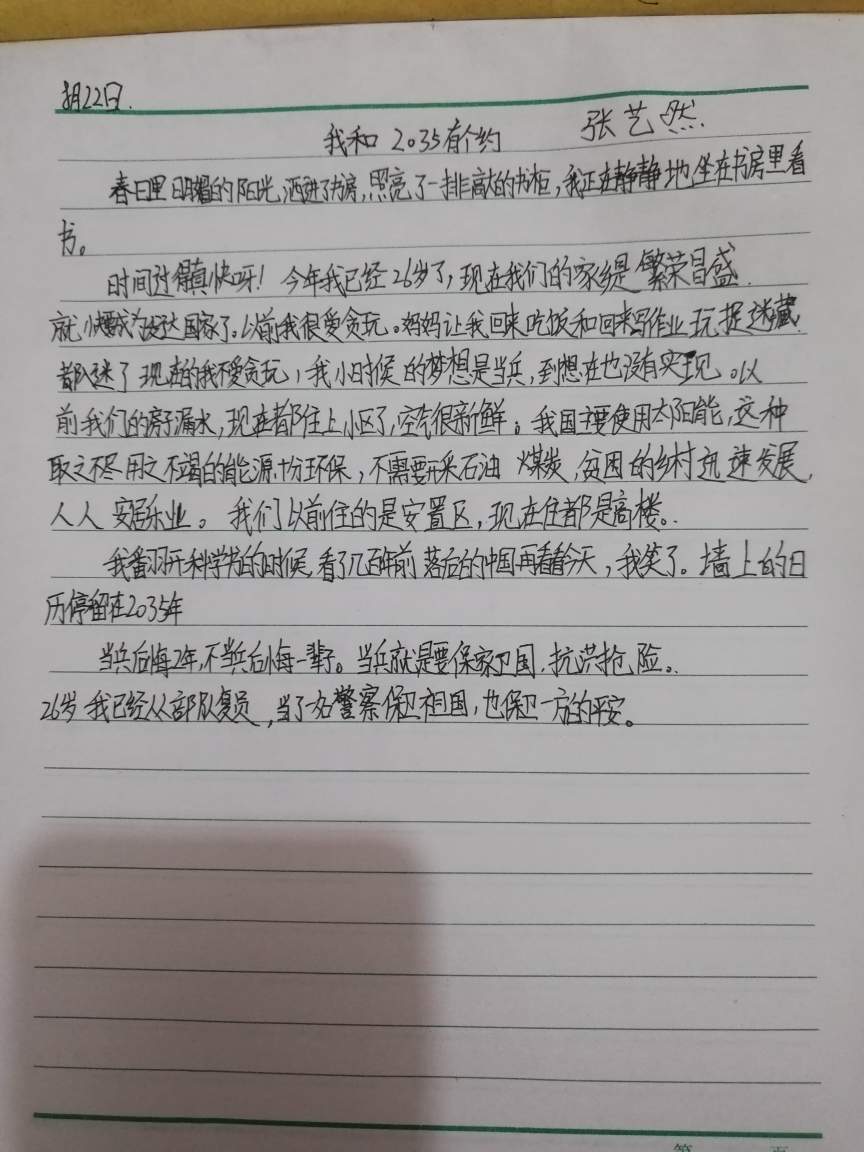 3月22日.
我和2035有个约 张艺然
春日里明媚的阳光,洒进了书房,照亮了一排高大的书柜,我正在静静地坐在书房里看
书。
时间过得真快呀!今年我已经26岁了,现在我们的家乡是繁荣昌盛.
就快要成为发达国家了。以前我很爱贪玩。妈妈让我回来吃饭和回来写作业玩捉迷藏
都入迷了现在的我不爱贪玩,我小时候的梦想是当兵,到想在也没有实现。以
前我们的房子漏水,现在都住上小区了,空气很新鲜。我国主要使用太阳能,这种
取之不尽用之不竭的能源十分环保,不需要开采石油 煤炭,贫困的乡村迅速发展,
人人 安居乐业。我们以前住的是安置区,现在住都是高楼。
我翻开科学书的时候,看了几百年前落后的中国再看看今天,我笑了。墙上的日
历停留在2035年
当兵后悔2年,不当兵后悔一辈子。当兵就是要保家卫国,抗洪抢险。
26岁我已经从部队复员,当了一名警察保卫祖国,也保卫一方的平安。
第 页